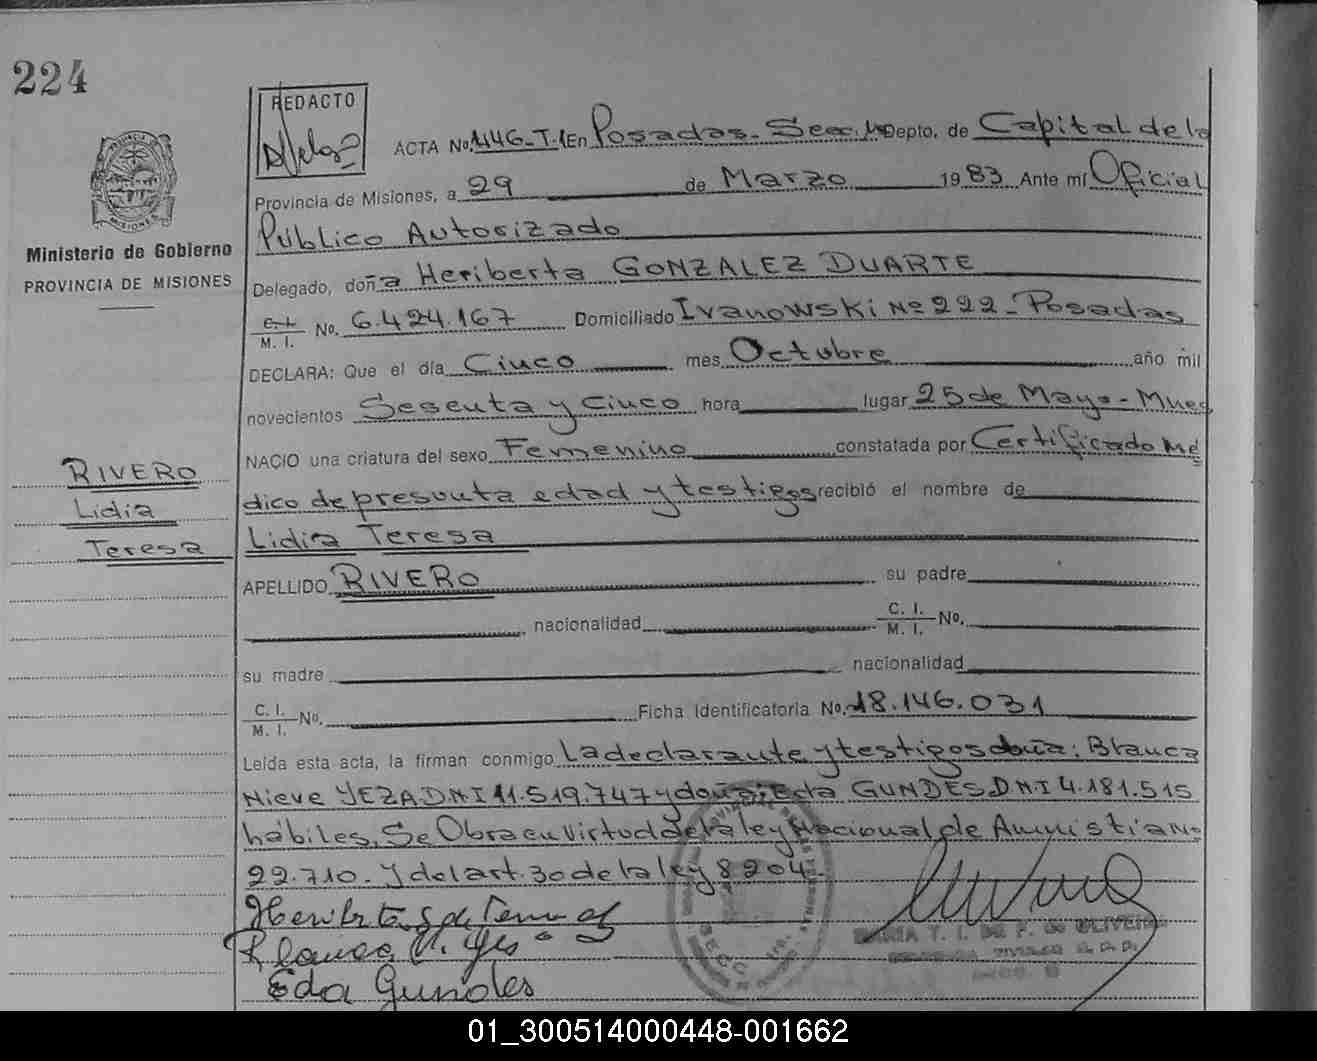 224
REDACTO
ACTA No. 1446-T.1 En Posadas - Sec. 1ª Depto. de Capital de la
Provincia de Misiones, a 29 de Marzo 1983 Ante mí Oficial
Público Autorizado
Ministerio de Gobierno
PROVINCIA DE MISIONES
Delegado, doña Heriberta GONZALEZ DUARTE
C. I.
M. I. No. 6.424.167 Domiciliado Ivanowski Nº 222 - Posadas
DECLARA: Que el día Cinco mes Octubre año mil
novecientos Sesenta y cinco hora lugar 25 de Mayo - Mnes
NACIO una criatura del sexo Femenino constatada por Certificado Mé
dico de presunta edad y testigos recibió el nombre de
RIVERO
Lidia
Teresa
Lidia Teresa
APELLIDO RIVERO su padre
nacionalidad C. I.
M. I. No.
su madre nacionalidad
C. I.
M. I. No. Ficha Identificatoria No. 18.146.031
Leída esta acta, la firman conmigo La declarante y testigos doña: Blanca
Nieve YEZA DNI 11.519.747 y doña: Eda GUNDES DNI 4.181.515
hábiles. Se Obra en virtud de la ley Nacional de Amnistia Nº
22.710. y del art. 30 de la ley 8204.
Eda Gundes
MARIA T. I. DE F. de OLIVEIRA
01_300514000448-001662